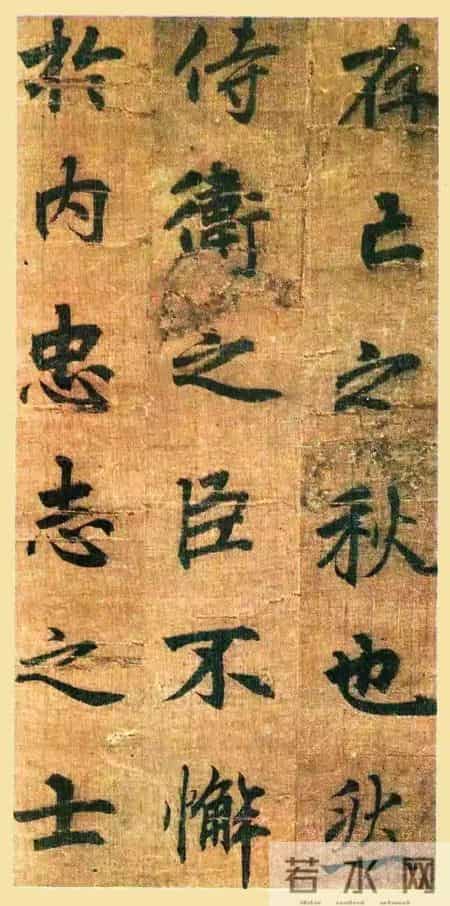 存亡之秋也然
侍衛之臣不懈
於内忠志之士
若水网